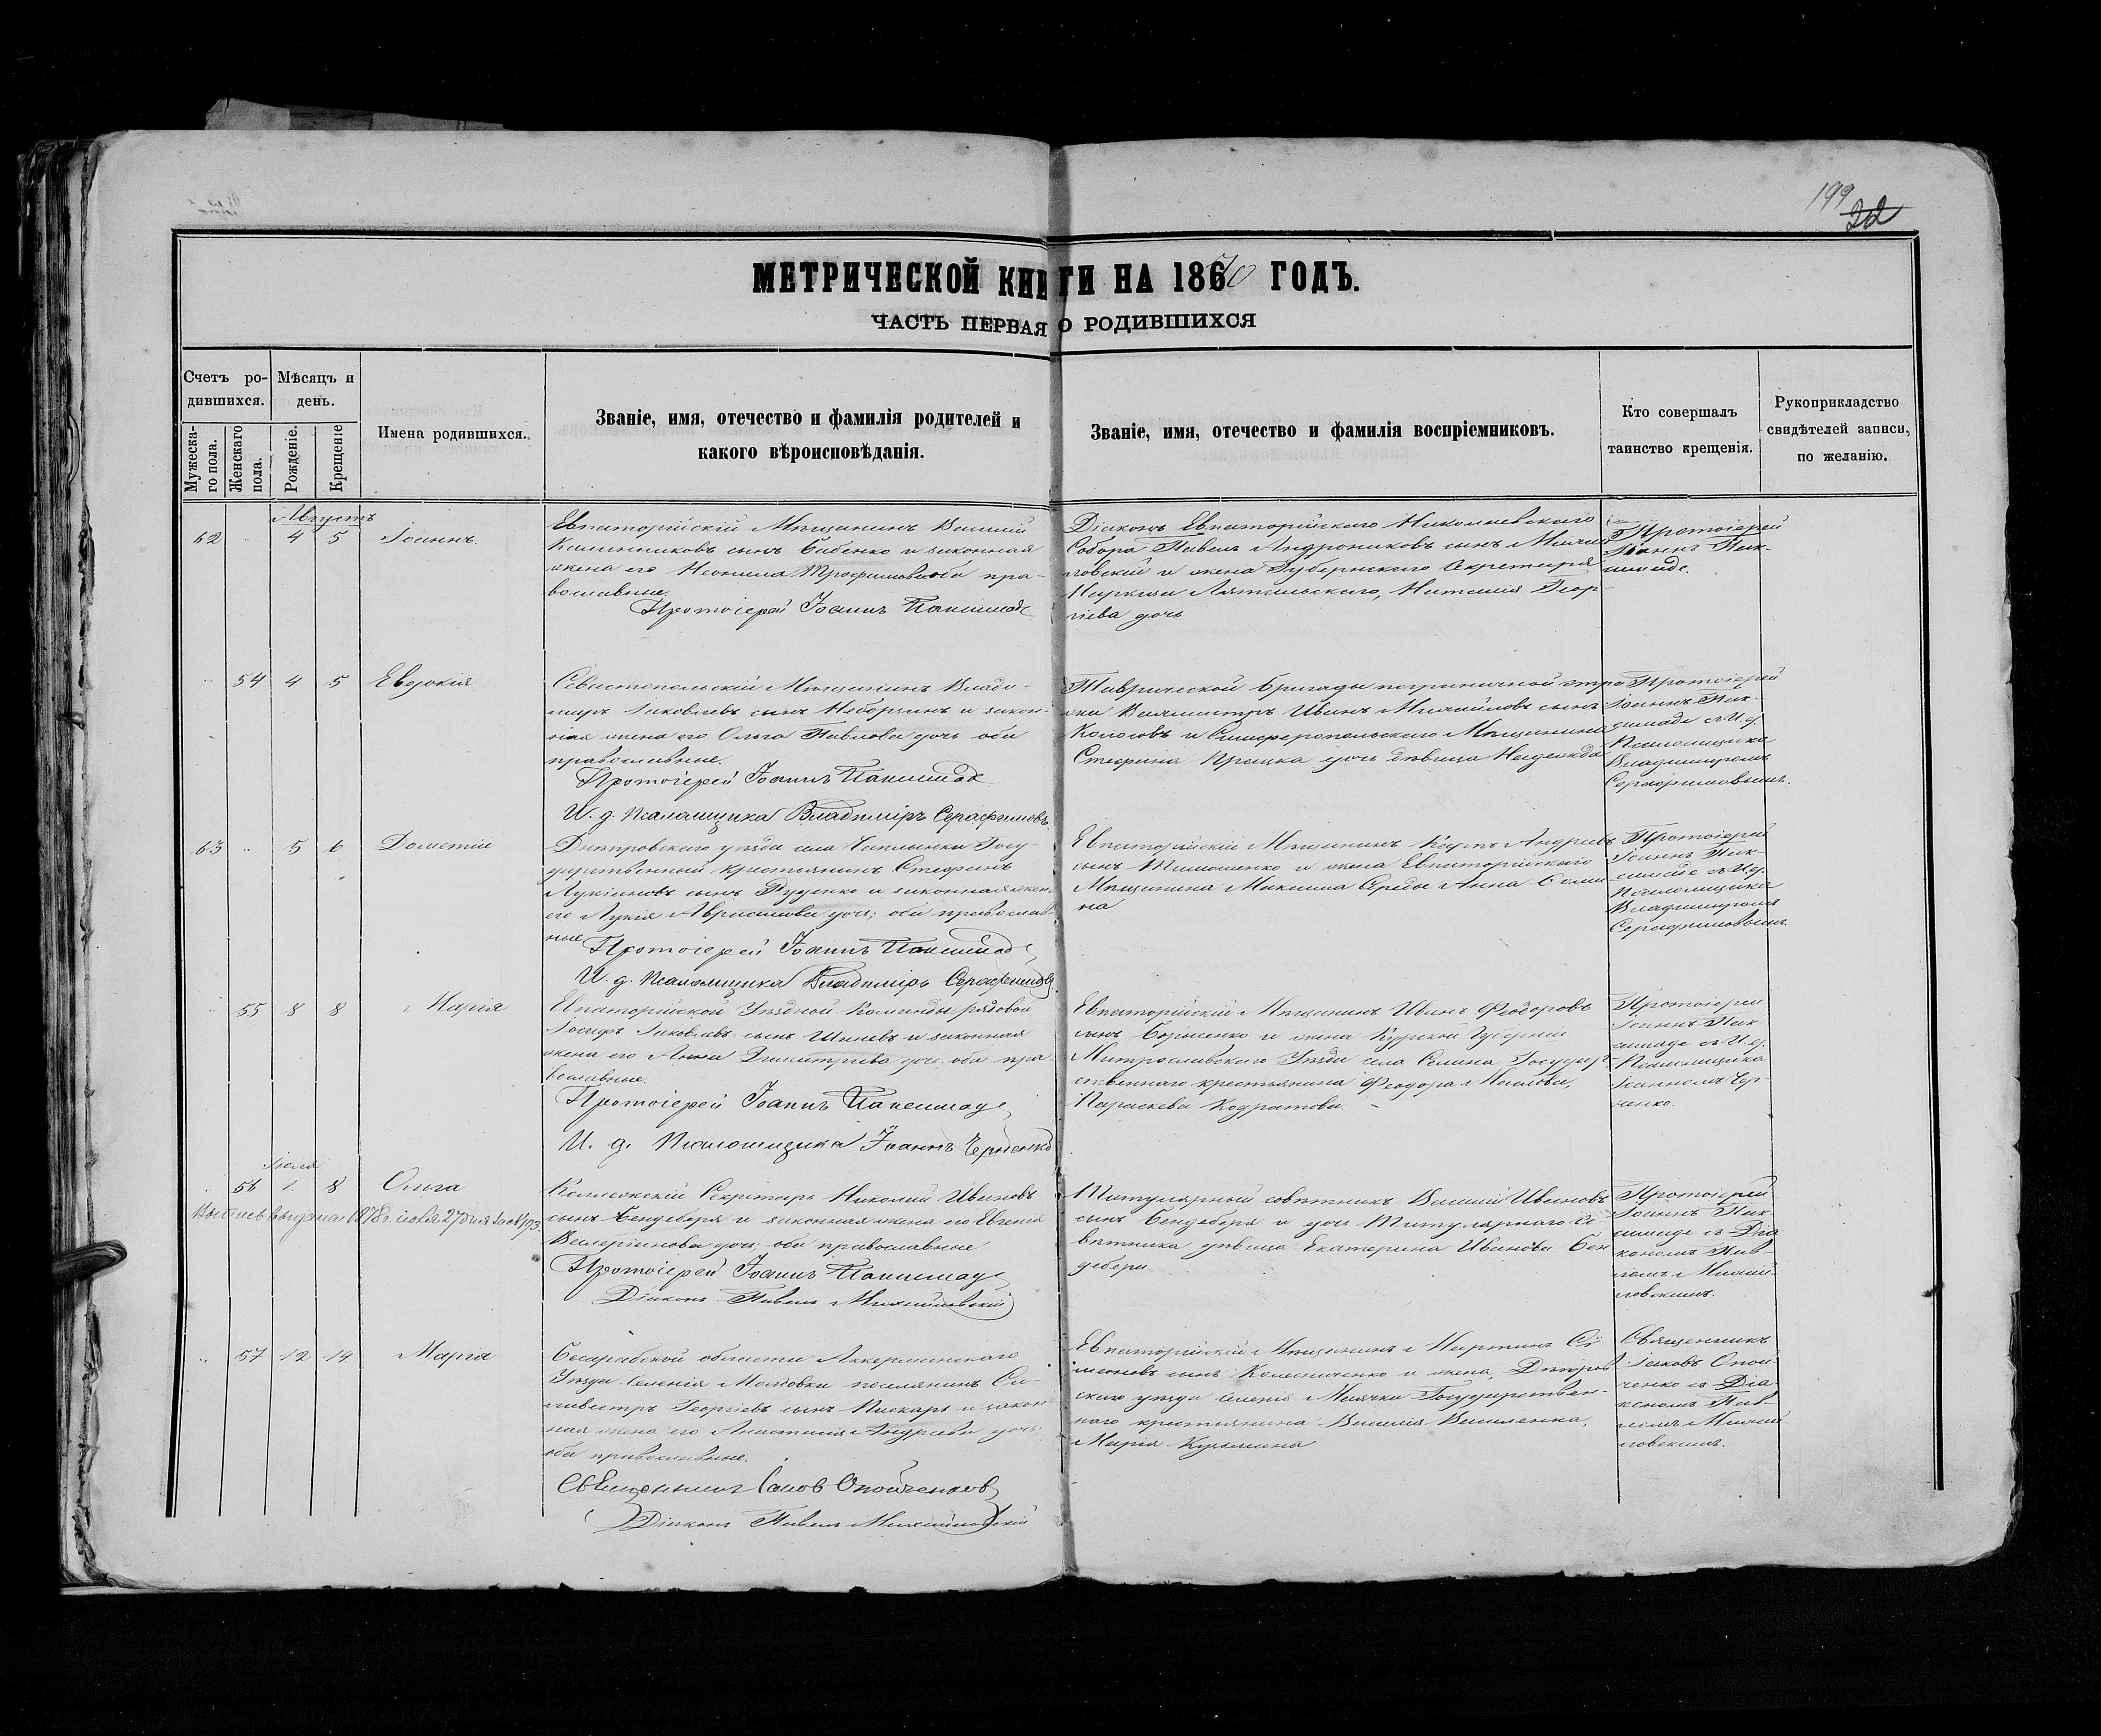 199
22
МЕТРИЧЕСКОЙ КНИГИ НА 1870 ГОДЪ.
ЧАСТЬ ПЕРВАЯ О РОДИВШИХСЯ
Счетъ ро-
дившихся.
Мѣсяцъ и
день.
Мужеска-
го пола.
Женскаго
пола.
Рожденіе.
Крещеніе
Имена родившихся.
Званіе, имя, отечество и фамилія родителей и
какого вѣроисповѣданія.
Званіе, имя, отечество и фамилія воспріемниковъ.
Кто совершалъ
таинство крещенія.
Рукоприкладство
свидѣтелей записи,
по желанію.
Августъ
62 4 5 Іоаннъ.
Евпаторійскій Мѣщанинъ Василій
сынъ Бабенко и законная
жена его Неонила Трофимова оба пра-
вославные.
Протоіерей Іоаннъ
Діаконъ Евпаторійскаго Николаевскаго
Собора Павелъ Андрониковъ сынъ Михай-
ловскій и жена Губернскаго Секретаря
Наталія Геор-
гіева дочь
Протоіерей
Іоаннъ
54 4 5 Евдокія
Севастопольскій Мѣщанинъ Влади-
миръ Яковлевъ сынъ и закон-
ная жена его Ольга Павлова дочь оба
православные.
Протоіерей Іоаннъ
И. д. Псаломщика Владиміръ Серафимовъ
Таврической бригады пограничной стра-
жи Вахмистръ Иванъ Михайловъ сынъ
Колосовъ и Симферопольскаго Мѣщанина
Стефана дочь дѣвица Надежда
Протоіерей
Іоаннъ
съ И. д.
Псаломщика
Владимиромъ
Серафимовымъ.
63 5 6 Дометій
Днѣпровскаго уѣзда села Чаплынки Госу-
дарственный крестьянинъ Стефанъ
Лукіановъ сынъ Руденко и законная жена
его Лукія дочь; оба православ-
ные
Протоіерей Іоаннъ
И. д. Псаломщика Владиміръ Серафимовъ
Евпаторійскій Мѣщанинъ Андреевъ
сынъ Тимошенко и жена Евпаторійскаго
Мѣщанина Максима Середы Анна
на
Протоіерей
Іоаннъ
съ И. д.
Псаломщика
Владимиромъ
Серафимовымъ.
55 8 8 Марія
Евпаторійской Уѣздной Команды рядовой
Іосифъ Яковлевъ сынъ и законная
жена его Анна Димитріева дочь оба пра-
вославные.
Протоіерей Іоаннъ
И. д. Псаломщика Іоаннъ Черненко
Евпаторійскій Мѣщанинъ Иванъ Феодоровъ
сынъ Борисенко и жена Курской Губерніи
Уѣзда села Селина, Государ-
ственнаго крестьянина Феодора
Параскева Кодратова.
Протоіерей
Іоаннъ
съ И. д.
Псаломщика
Іоанномъ Чер-
ненко.
Іюля
56 1. 8 Ольга
Выпись выдана 1878 г. іюля 27 дня за № 193
Коллежскій Секретарь Николай Ивановъ
сынъ Бендеберя и законная жена его Евгенія
Валеріанова дочь; оба православные
Протоіерей Іоаннъ
Діаконъ Павелъ Михайловскій
Титулярный совѣтникъ Василій Ивановъ
сынъ Бендеберя и дочь Титулярнаго Со-
вѣтника дѣвица Екатерина Иванова Бен-
дебери
Протоіерей
Іоаннъ
съ Діа-
кономъ Пав-
ломъ Михай-
ловскимъ.
57 12 14 Марія
Бесарабской области Аккерманскаго
Уѣзда Селенія Молдовки поселянинъ Си-
ливестръ Георгіевъ сынъ Пискарь и закон-
ная жена его Анастасія Андреева дочь
оба православные.
Священникъ Іаковъ
Діаконъ Павелъ Михайловскій
Евпаторійскій Мѣщанинъ Мартинъ Сі-
меоновъ сынъ Колесниченко и жена, Днѣпров-
скаго уѣзда Селенія Государствен-
наго крестьянина Василія Василенка,
Марія Кузьмина
Священникъ
Іаковъ Опой-
ченко съ Діа-
кономъ Пав-
ломъ Михай-
ловскимъ.